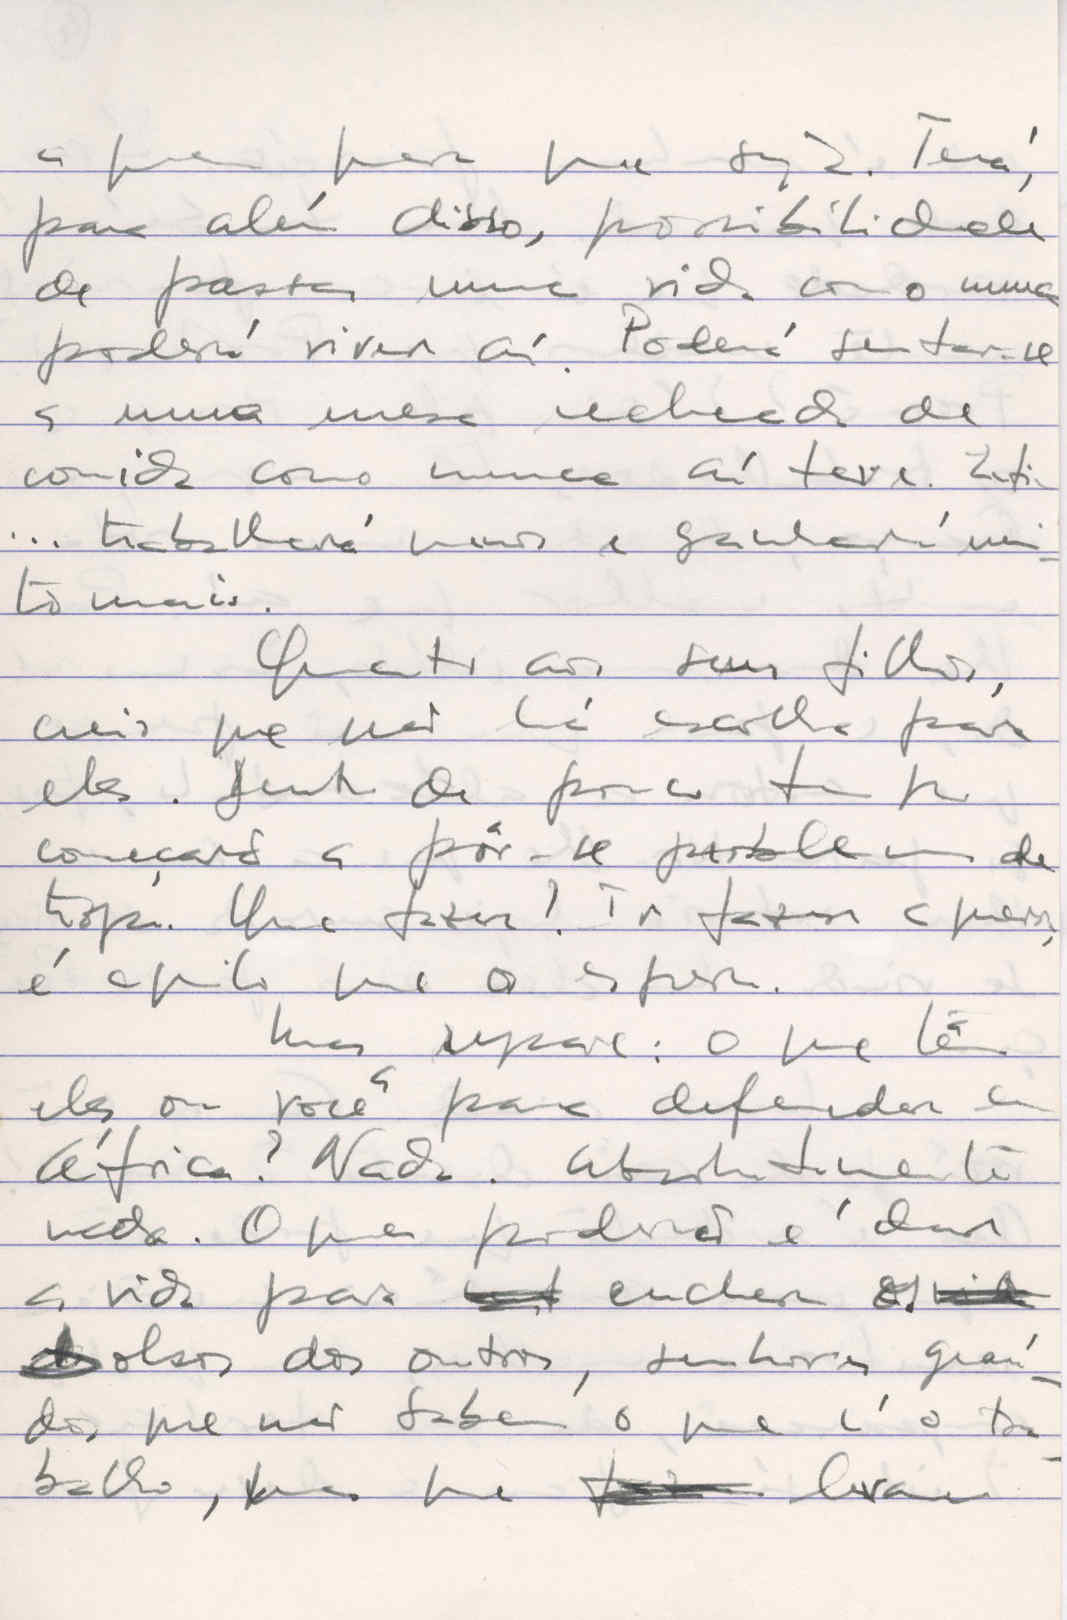 a quem quer que seja. Terá,
para além disso, possibilidade
de passar uma vida como nunca
poderá viver aí. Poderá sentar-se
a uma mesa recheada de
comida como nunca aí teve. Enfim
... trabalhará menos e ganhará mui-
to mais.
Quanto aos seus filhos,
creio que não há escolha para
eles. Dentro de pouco tempo
começará a pôr-se problema de
tropa. Que fazer? Ir fazer a guerra,
é aquilo que o espera.
Mas repare: o que têm
eles ou você a para defender em
África? Nada. Absolutamente
nada. O que poderão é dar
a vida para encher os
bolsos dos outros, senhores graú-
dos, que não sabem o que é o tra-
balho, mas que levam